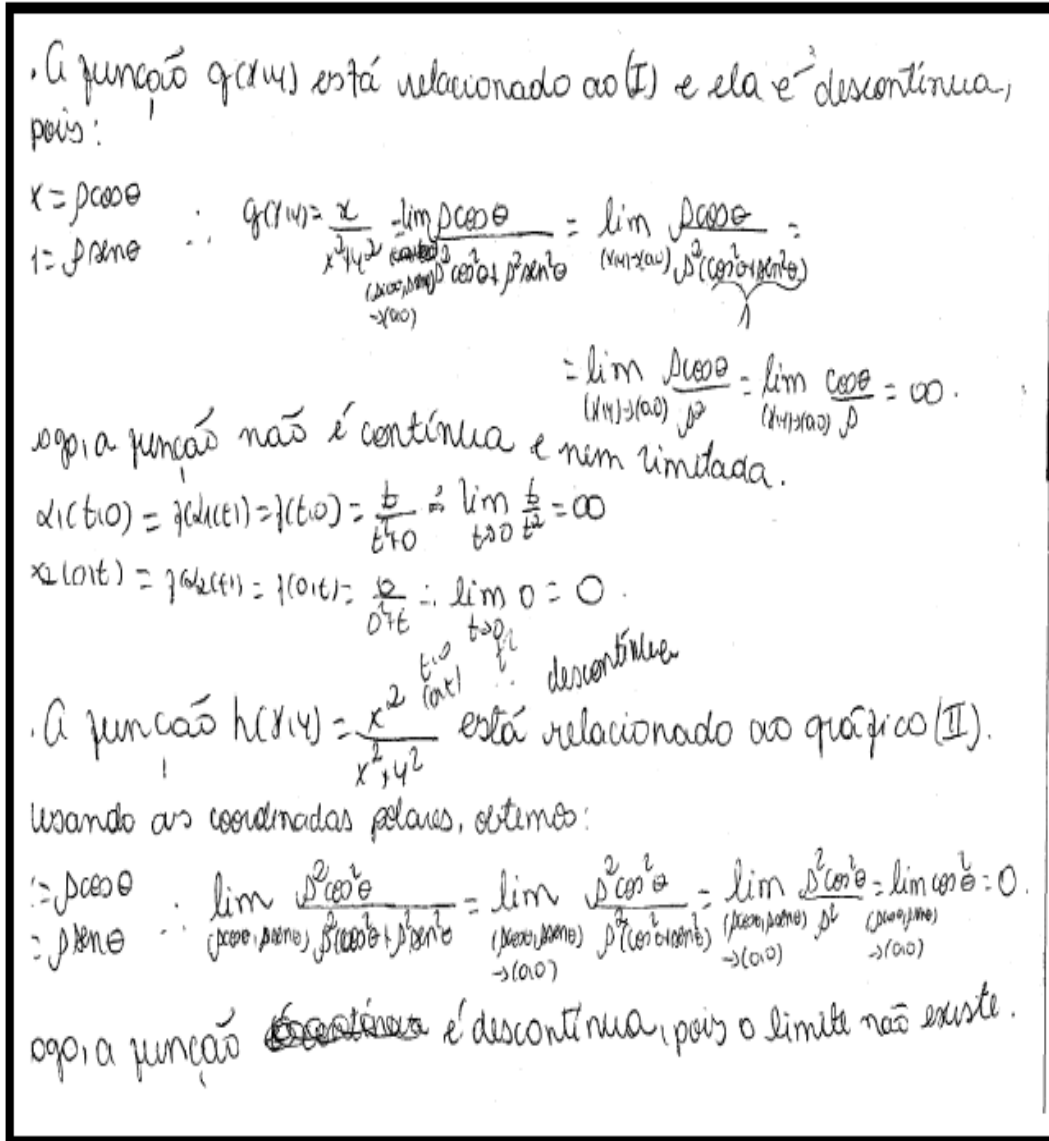 . A função g(x,y) está relacionado ao (I) e ela é descontínua,
pois:
x = ρcosθ
y = ρsenθ ∴ g(x,y) = x/(x²+y²) = lim (ρcosθ, ρsenθ)→(0,0) ρcosθ/(ρ²cos²θ + ρ²sen²θ) = lim (x,y)→(0,0) ρcosθ/(ρ²(cos²θ+sen²θ)) =
1
= lim (x,y)→(0,0) ρcosθ/ρ² = lim (x,y)→(0,0) cosθ/ρ = ∞.
ogo, a função não é contínua e nem limitada.
α1(t,0) = f(α1(t)) = f(t,0) = t/(t²+0) ∴ lim t→0 t/t² = ∞
α2(0,t) = f(α2(t)) = f(0,t) = 0/(0²+t) ∴ lim t→0 0 = 0.
t,0
(0,t) ∴ descontínua
. A função h(x,y) = x²/(x²+y²) está relacionado ao gráfico (II).
usando as coordinadas polares, obtemos:
= ρcosθ
= ρsenθ ∴ lim (ρcosθ, ρsenθ) ρ²cos²θ/(ρ²cos²θ + ρ²sen²θ) = lim (ρcosθ, ρsenθ)→(0,0) ρ²cos²θ/(ρ²(cos²θ+sen²θ)) = lim (ρcosθ, ρsenθ)→(0,0) ρ²cos²θ/ρ² = lim (ρcosθ, ρsenθ)→(0,0) cos²θ = 0.
ogo, a função é descontínua, pois o limite não existe.